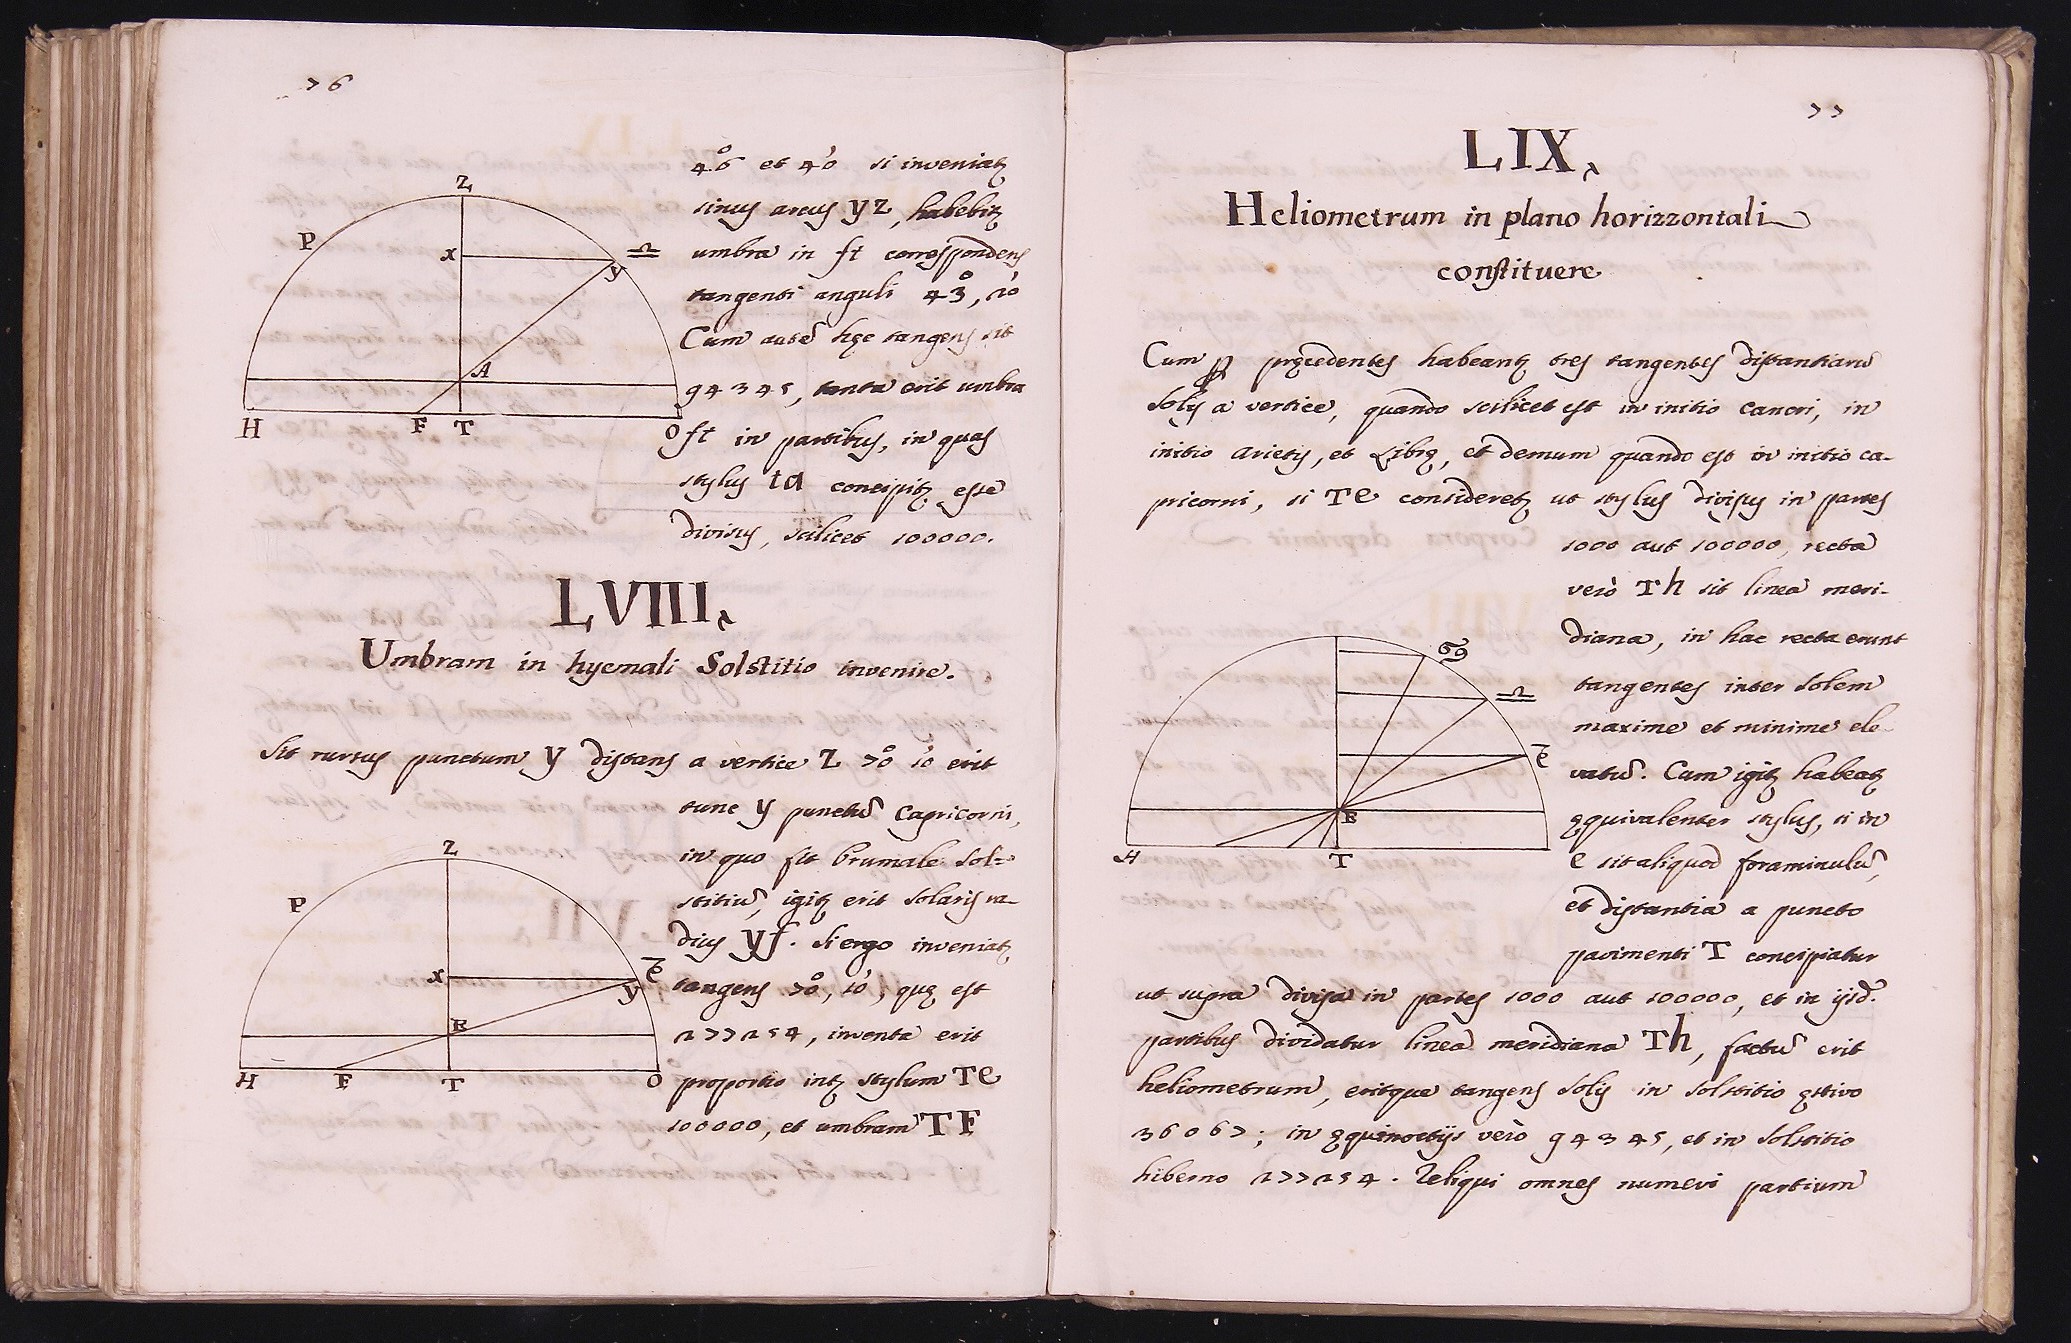 76
4°6 et 4'0 si inveniatʒ
sinus arcus yz, habebitʒ
umbra in ft correspondens
tangenti anguli 43°, 20'
Cum autē hęc tangens sit
94345, tanta erit umbra
ft in partibus, in quas
stylus ta concipitʒ esse
divisus, scilicet 100000.
Z
P
x
♎
y
A
H F T O
LVIII,
Umbram in hyemali Solstitio invenire.
Sit rursus punctum y distans a vertice Z 70° 10' erit
tunc y punctū Capricorni,
in quo fit brumale sol=
stitiū, igitʒ erit solaris ra-
dius yf. Si ergo inveniatʒ
tangens 70°, 10', quę est
277254, inventa erit
proportio intʒ stylum Te
100000, et umbram TF
Z
P
x
y
E
H F T O
77
LIX,
Heliometrum in plano horizzontali
constituere
Cum ꝑ pręcedentes habeantʒ tres tangentes distantiarū
Solis a vertice, quando scilicet est in initio cancri, in
initio Arietis, et Librę, et demum quando est in initio ca-
pricorni, si Te consideretʒ ut stylus divisus in partes
1000 aut 100000, recta
verò Th sit linea meri-
diana, in hac recta erunt
tangentes inter Solem
maxime et minime ele-
vatū. Cum igitʒ habeatʒ
ęquivalenter stylus, si in
e sit aliquod foraminulū,
et distantia a puncto
pavimenti T concipiatur
♋
♎
E
H T
ut supra divisa in partes 1000 aut 100000, et in ijsd.
partibus dividatur linea meridiana Th, factū erit
heliometrum, eritque tangens Solis in Solstitio ęstivo
36067; in ęquinoctijs verò 94345, et in Solstitio
hiberno 277254. Reliqui omnes numeri partium